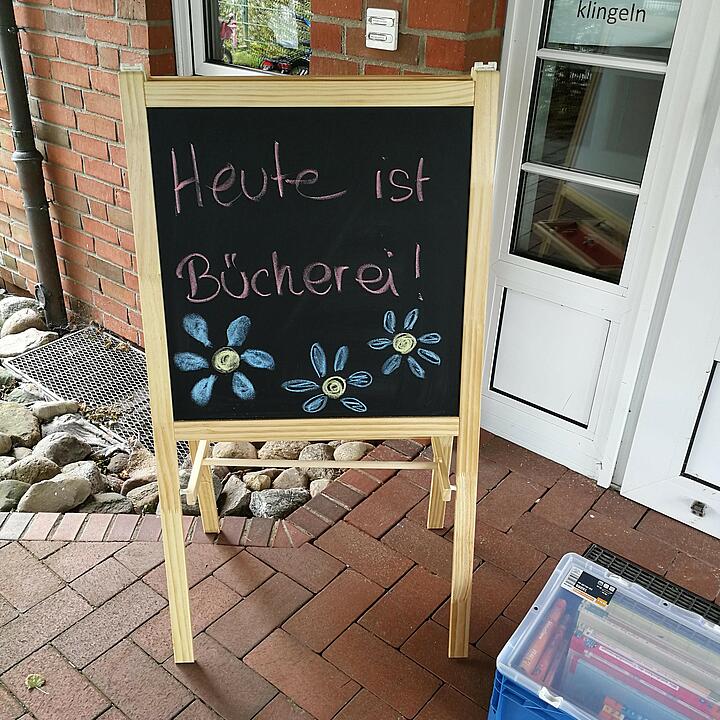 klingeln
Heute ist
Bücherei!